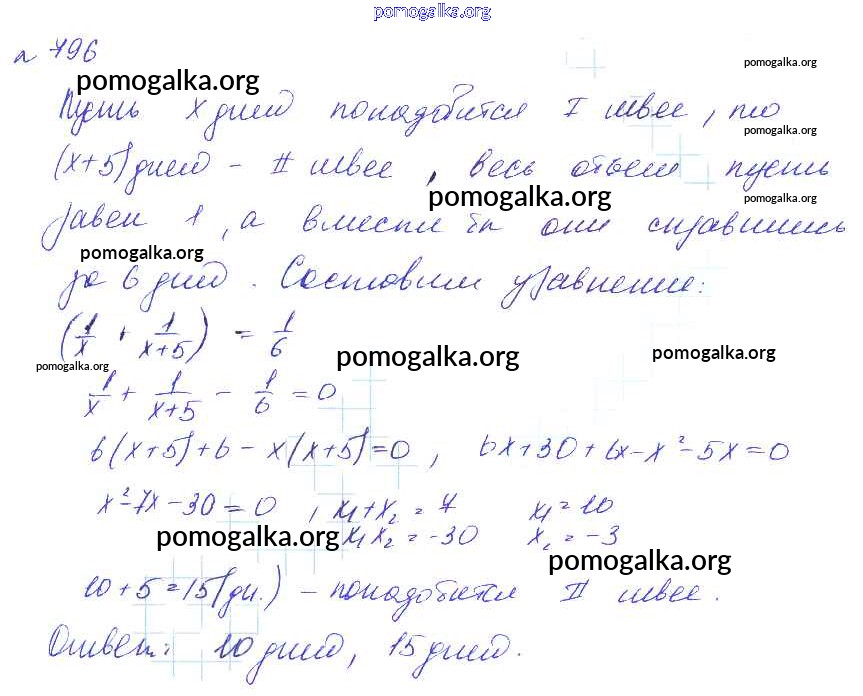 pomogalka.org
n 796
pomogalka.org
pomogalka.org
Пусть x дней понадобится I швее, то
pomogalka.org
(x+5) дней - II швее, весь объем пусть
pomogalka.org
pomogalka.org
равен 1, а вместе бы они справились
pomogalka.org
за 6 дней. Составим уравнение:
(1/x + 1/(x+5)) = 1/6
pomogalka.org
pomogalka.org
pomogalka.org
1/x + 1/(x+5) - 1/6 = 0
6(x+5)+6-x(x+5)=0, 6x+30+6x-x²-5x=0
x²-7x-30=0, x₁+x₂=7 x₁=10
pomogalka.org
x₁x₂=-30 x₂=-3
pomogalka.org
10+5=15(дн.) - понадобится II швее.
Ответ: 10 дней, 15 дней.